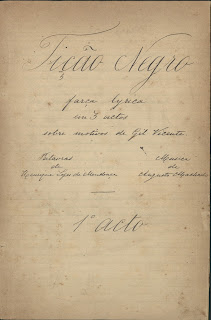 Tição Negro
farça lyrica
em 3 actos
sobre motivos de Gil Vicente.
Palavras
de
Henrique Lopes de Mendonça
Musica
de
Augusto Machado
1º acto